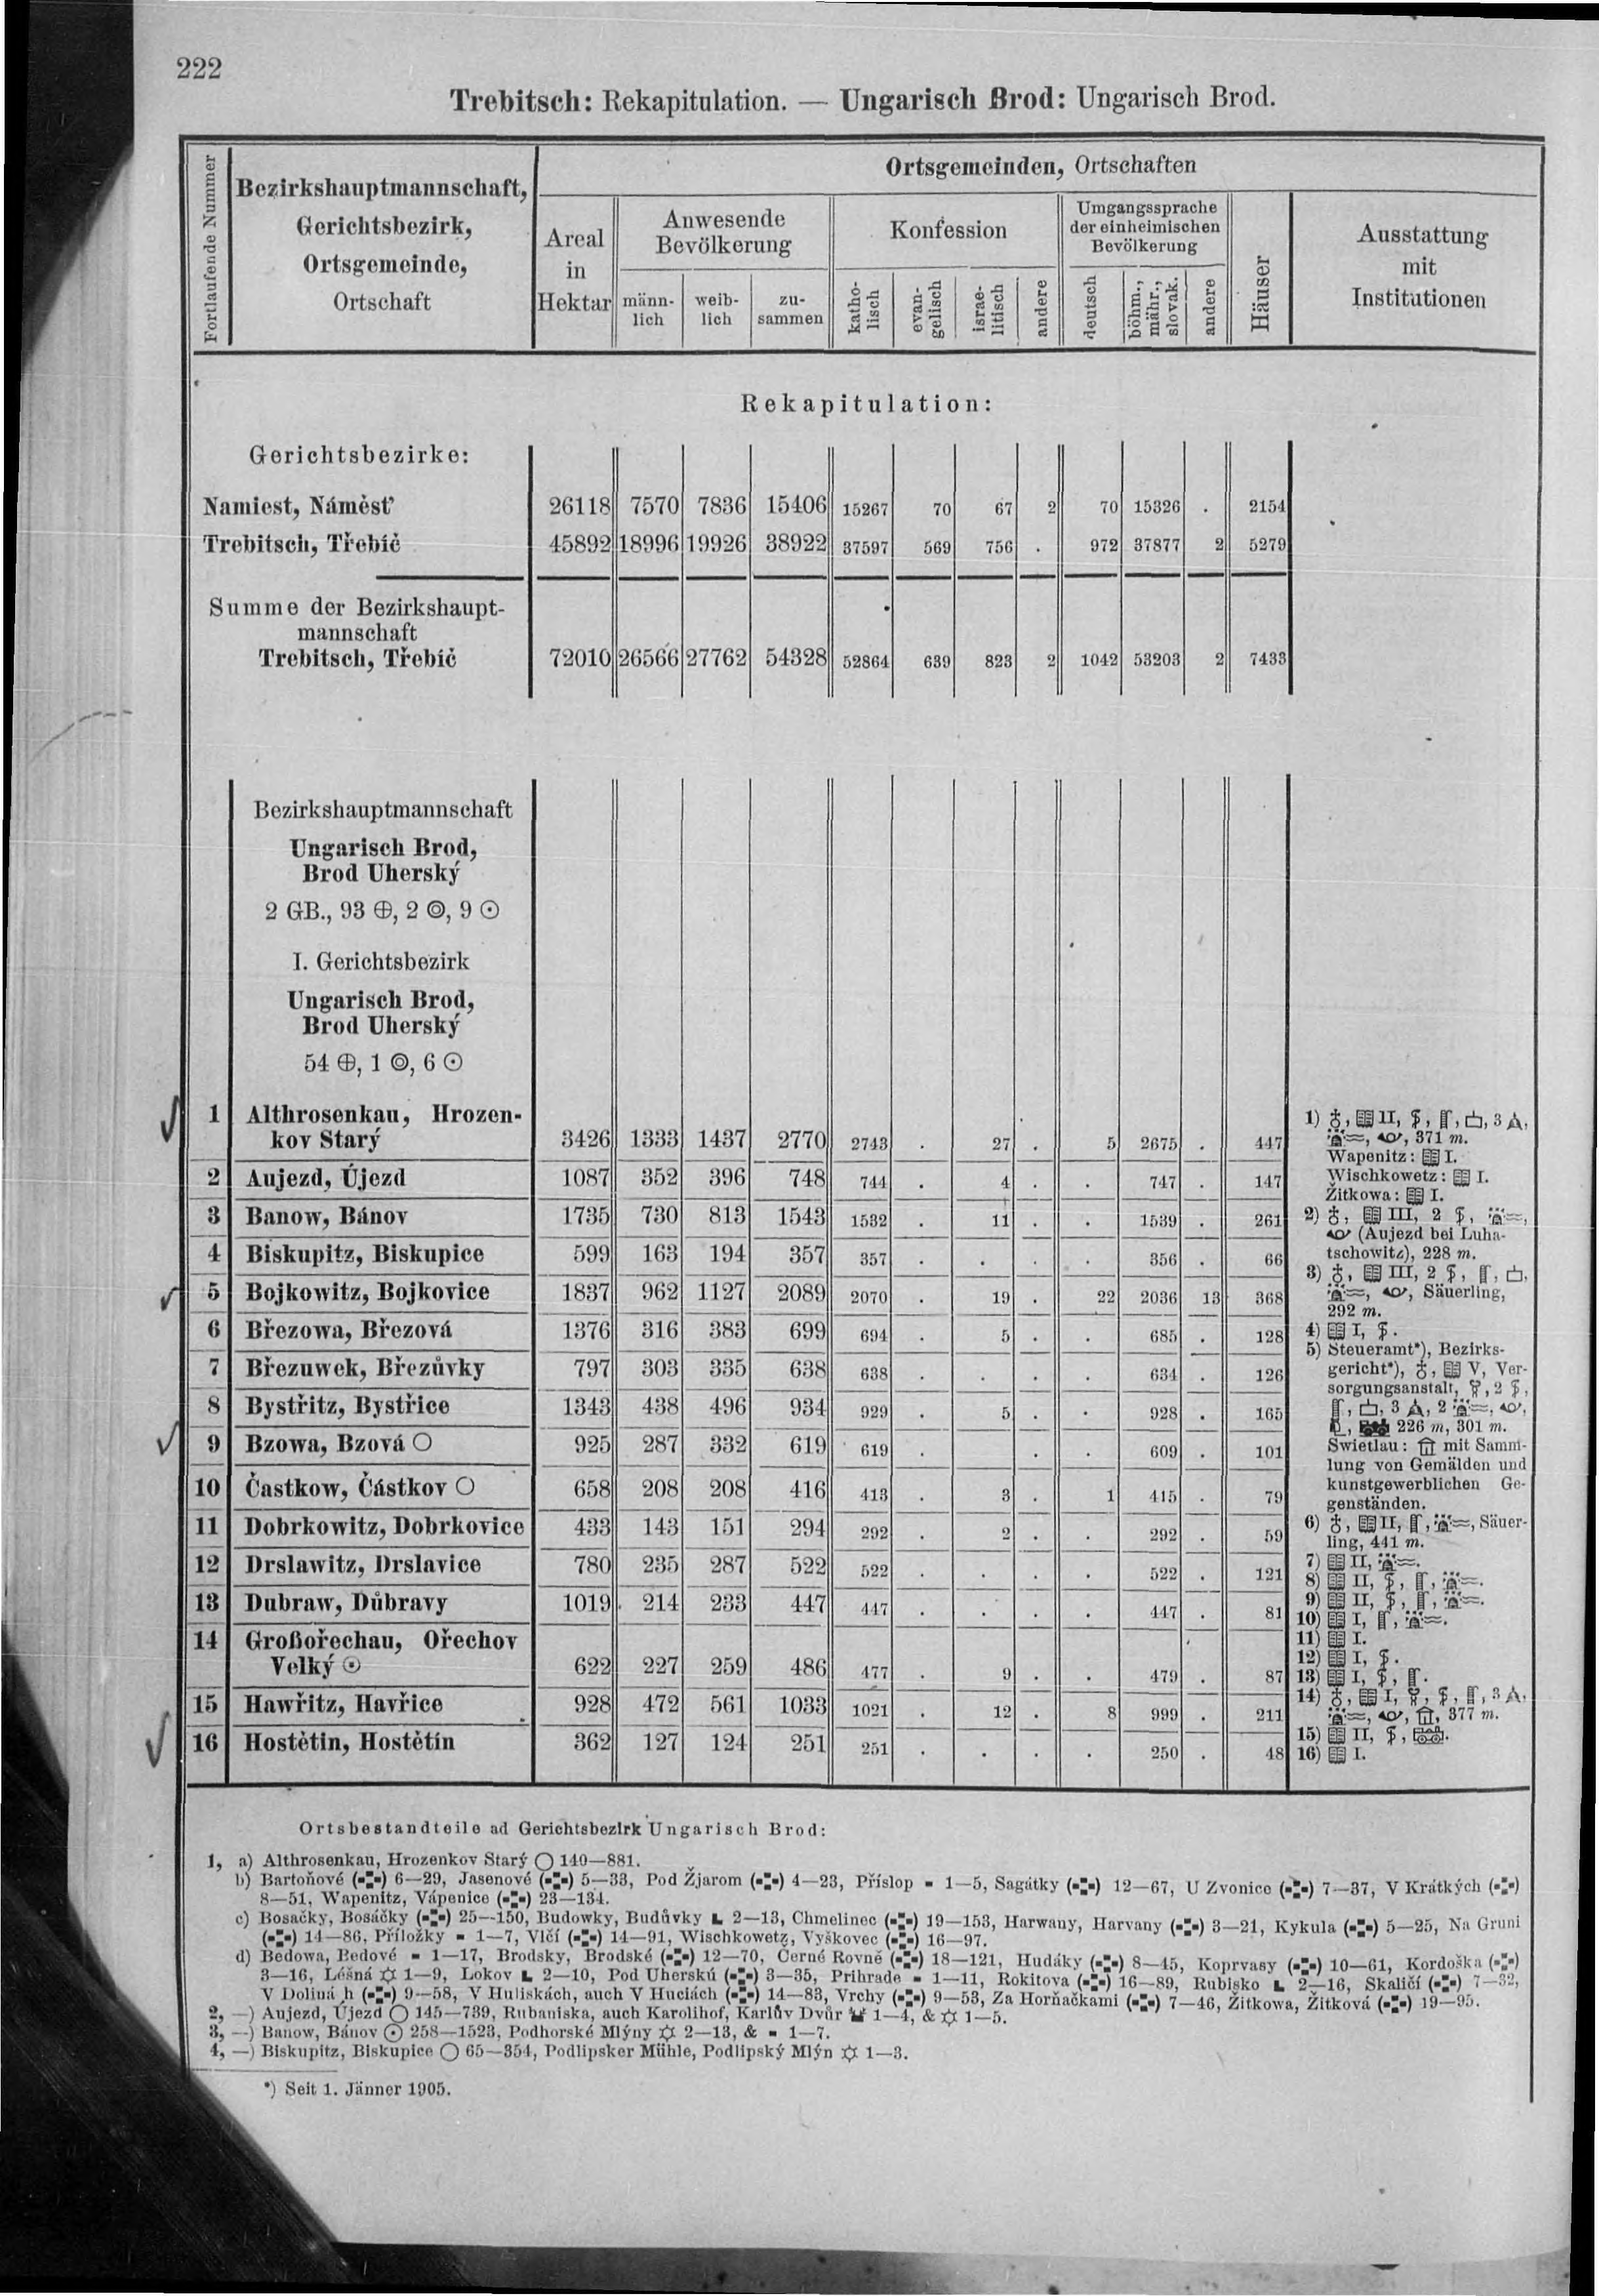 222
Trebitsch: Rekapitulation. — Ungarisch Brod: Ungarisch Brod.
Fortlaufende Nummer
Bezirkshauptmannschaft,
Gerichtsbezirk,
Ortsgemeinde,
Ortschaft
Ortsgemeinden, Ortschaften
Areal
in
Hektar
Anwesende
Bevölkerung
männ-
lich
weib-
lich
zu-
sammen
Konfession
katho-
lisch
evan-
gelisch
israe-
litisch
andere
Umgangssprache
der einheimischen
Bevölkerung
deutsch
böhm.,
mähr.,
slovak.
andere
Häuser
Ausstattung
mit
Institutionen
Rekapitulation:
Gerichtsbezirke:
Namiest, Náměsť 26118 7570 7836 15406 15267 70 67 2 70 15326 . 2154
Trebitsch, Třebíč 45892 18996 19926 38922 37597 569 756 . 972 37877 2 5279
Summe der Bezirkshaupt-
mannschaft
Trebitsch, Třebíč 72010 26566 27762 54328 52864 639 823 2 1042 53203 2 7433
Bezirkshauptmannschaft
Ungarisch Brod,
Brod Uherský
2 GB., 93 ⊕, 2 ◎, 9 ⊙
I. Gerichtsbezirk
Ungarisch Brod,
Brod Uherský
54 ⊕, 1 ◎, 6 ⊙
1 Althrosenkau, Hrozen-
kov Starý 3426 1333 1437 2770 2743 . 27 . 5 2675 . 447
2 Aujezd, Újezd 1087 352 396 748 744 . 4 . . 747 . 147
3 Banow, Bánov 1735 730 813 1543 1532 . 11 . . 1539 . 261
4 Biskupitz, Biskupice 599 163 194 357 357 . . . . 356 . 66
5 Bojkowitz, Bojkovice 1837 962 1127 2089 2070 . 19 . 22 2036 13 368
6 Březowa, Březová 1376 316 383 699 694 . 5 . . 685 . 128
7 Březuwek, Březůvky 797 303 335 638 638 . . . . 634 . 126
8 Bystřitz, Bystřice 1343 438 496 934 929 . 5 . . 928 . 165
9 Bzowa, Bzová ○ 925 287 332 619 619 . . . 609 . 101
10 Častkow, Částkov ○ 658 208 208 416 413 . 3 . 1 415 . 79
11 Dobrkowitz, Dobrkovice 433 143 151 294 292 . 2 . . 292 . 59
12 Drslawitz, Drslavice 780 235 287 522 522 . . . . 522 . 121
13 Dubraw, Důbravy 1019 214 233 447 447 . . . . 447 . 81
14 Großořechau, Ořechov
Velký ⊙ 622 227 259 486 477 . 9 . . 479 . 87
15 Hawřitz, Havřice 928 472 561 1033 1021 . 12 . 8 999 . 211
16 Hostětin, Hostětín 362 127 124 251 251 . . . . 250 . 48
1) II, 3
371 m.
Wapenitz: I.
Wischkowetz: I.
Žitkowa: I.
2) III, 2
(Aujezd bei Luha-
tschowitz), 228 m.
3) III, 2
Säuerling,
292 m.
4) I,
5) Steueramt*), Bezirks-
gericht*), V, Ver-
sorgungsanstalt, 2
3 2
226 m, 301 m.
Swietlau: mit Samm-
lung von Gemälden und
kunstgewerblichen Ge-
genständen.
6) II, Säuer-
ling, 441 m.
7) II,
8) II,
9) II,
10) I,
11) I.
12) I,
13) I,
14) I, 3
377 m.
15) II,
16) I.
Ortsbestandteile ad Gerichtsbezirk Ungarisch Brod:
1, a) Althrosenkau, Hrozenkov Starý ○ 140—881.
b) Bartoňové 6—29, Jasenové 5—33, Pod Žjarom 4—23, Příslop 1—5, Sagátky 12—67, U Zvonice 7—37, V Krátkých
8—51, Wapenitz, Vápenice 23—134.
c) Bosačky, Bosáčky 25—150, Budowky, Budůvky 2—13, Chmelinec 19—153, Harwany, Harvany 3—21, Kykula 5—25, Na Gruni
14—86, Příložky 1—7, Vlčí 14—91, Wischkowetz, Vyškovec 16—97.
d) Bedowa, Bedové 1—17, Brodsky, Brodské 12—70, Černé Rovně 18—121, Hudáky 8—45, Koprvasy 10—61, Kordoška
3—16, Léšná 1—9, Lokov 2—10, Pod Uherskú 3—35, Prihrade 1—11, Rokitova 16—89, Rubisko 2—16, Skaličí 7—32,
V Doliná h 9—58, V Huliskách, auch V Huciách 14—83, Vrchy 9—53, Za Horňačkami 7—46, Žitkowa, Žítková 19—95.
2, —) Aujezd, Újezd ○ 145—739, Rubaniska, auch Karolihof, Karlův Dvůr 1—4, & 1—5.
3, —) Banow, Bánov ⊙ 258—1523, Podhorské Mlýny 2—13, & 1—7.
4, —) Biskupitz, Biskupice ○ 65—354, Podlipsker Mühle, Podlipský Mlýn 1—3.
*) Seit 1. Jänner 1905.